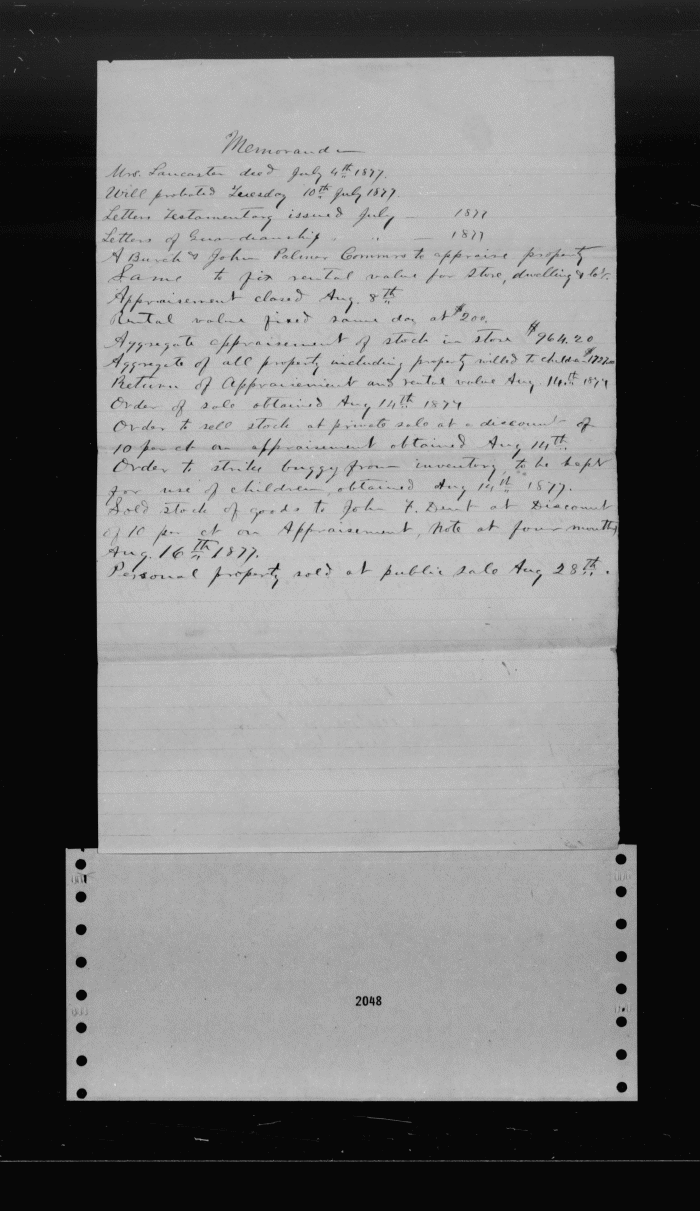 Memoranda
Mrs. Lancaster died July 4th 1877.
Will probated Tuesday 10th July 1877.
Letters Testamentary issued July — 1877
Letters of Guardianship " " — 1877
A Burch & John Palmer Commrs to appraise property
Same to fix rental value for store, dwelling & lot.
Appraisement closed Aug. 8th
Rental value fixed same day at $200
Aggregate appraisement of stock in store $964.20
Aggregate of all property including property willed to children
Return of Appraisement and rental value Aug. 14th 1877
Order of sale obtained Aug 14th 1877
Order to sell stock at private sale at a discount of
10 per ct on appraisement obtained Aug 14th.
Order to strike buggy from inventory, to be kept
for use of children, obtained Aug 14th 1877.
Sold stock of goods to John F. Dent at Discount
of 10 per ct on Appraisement, Note at four months
Aug. 16th 1877.
Personal property sold at public sale Aug 28th.
2048